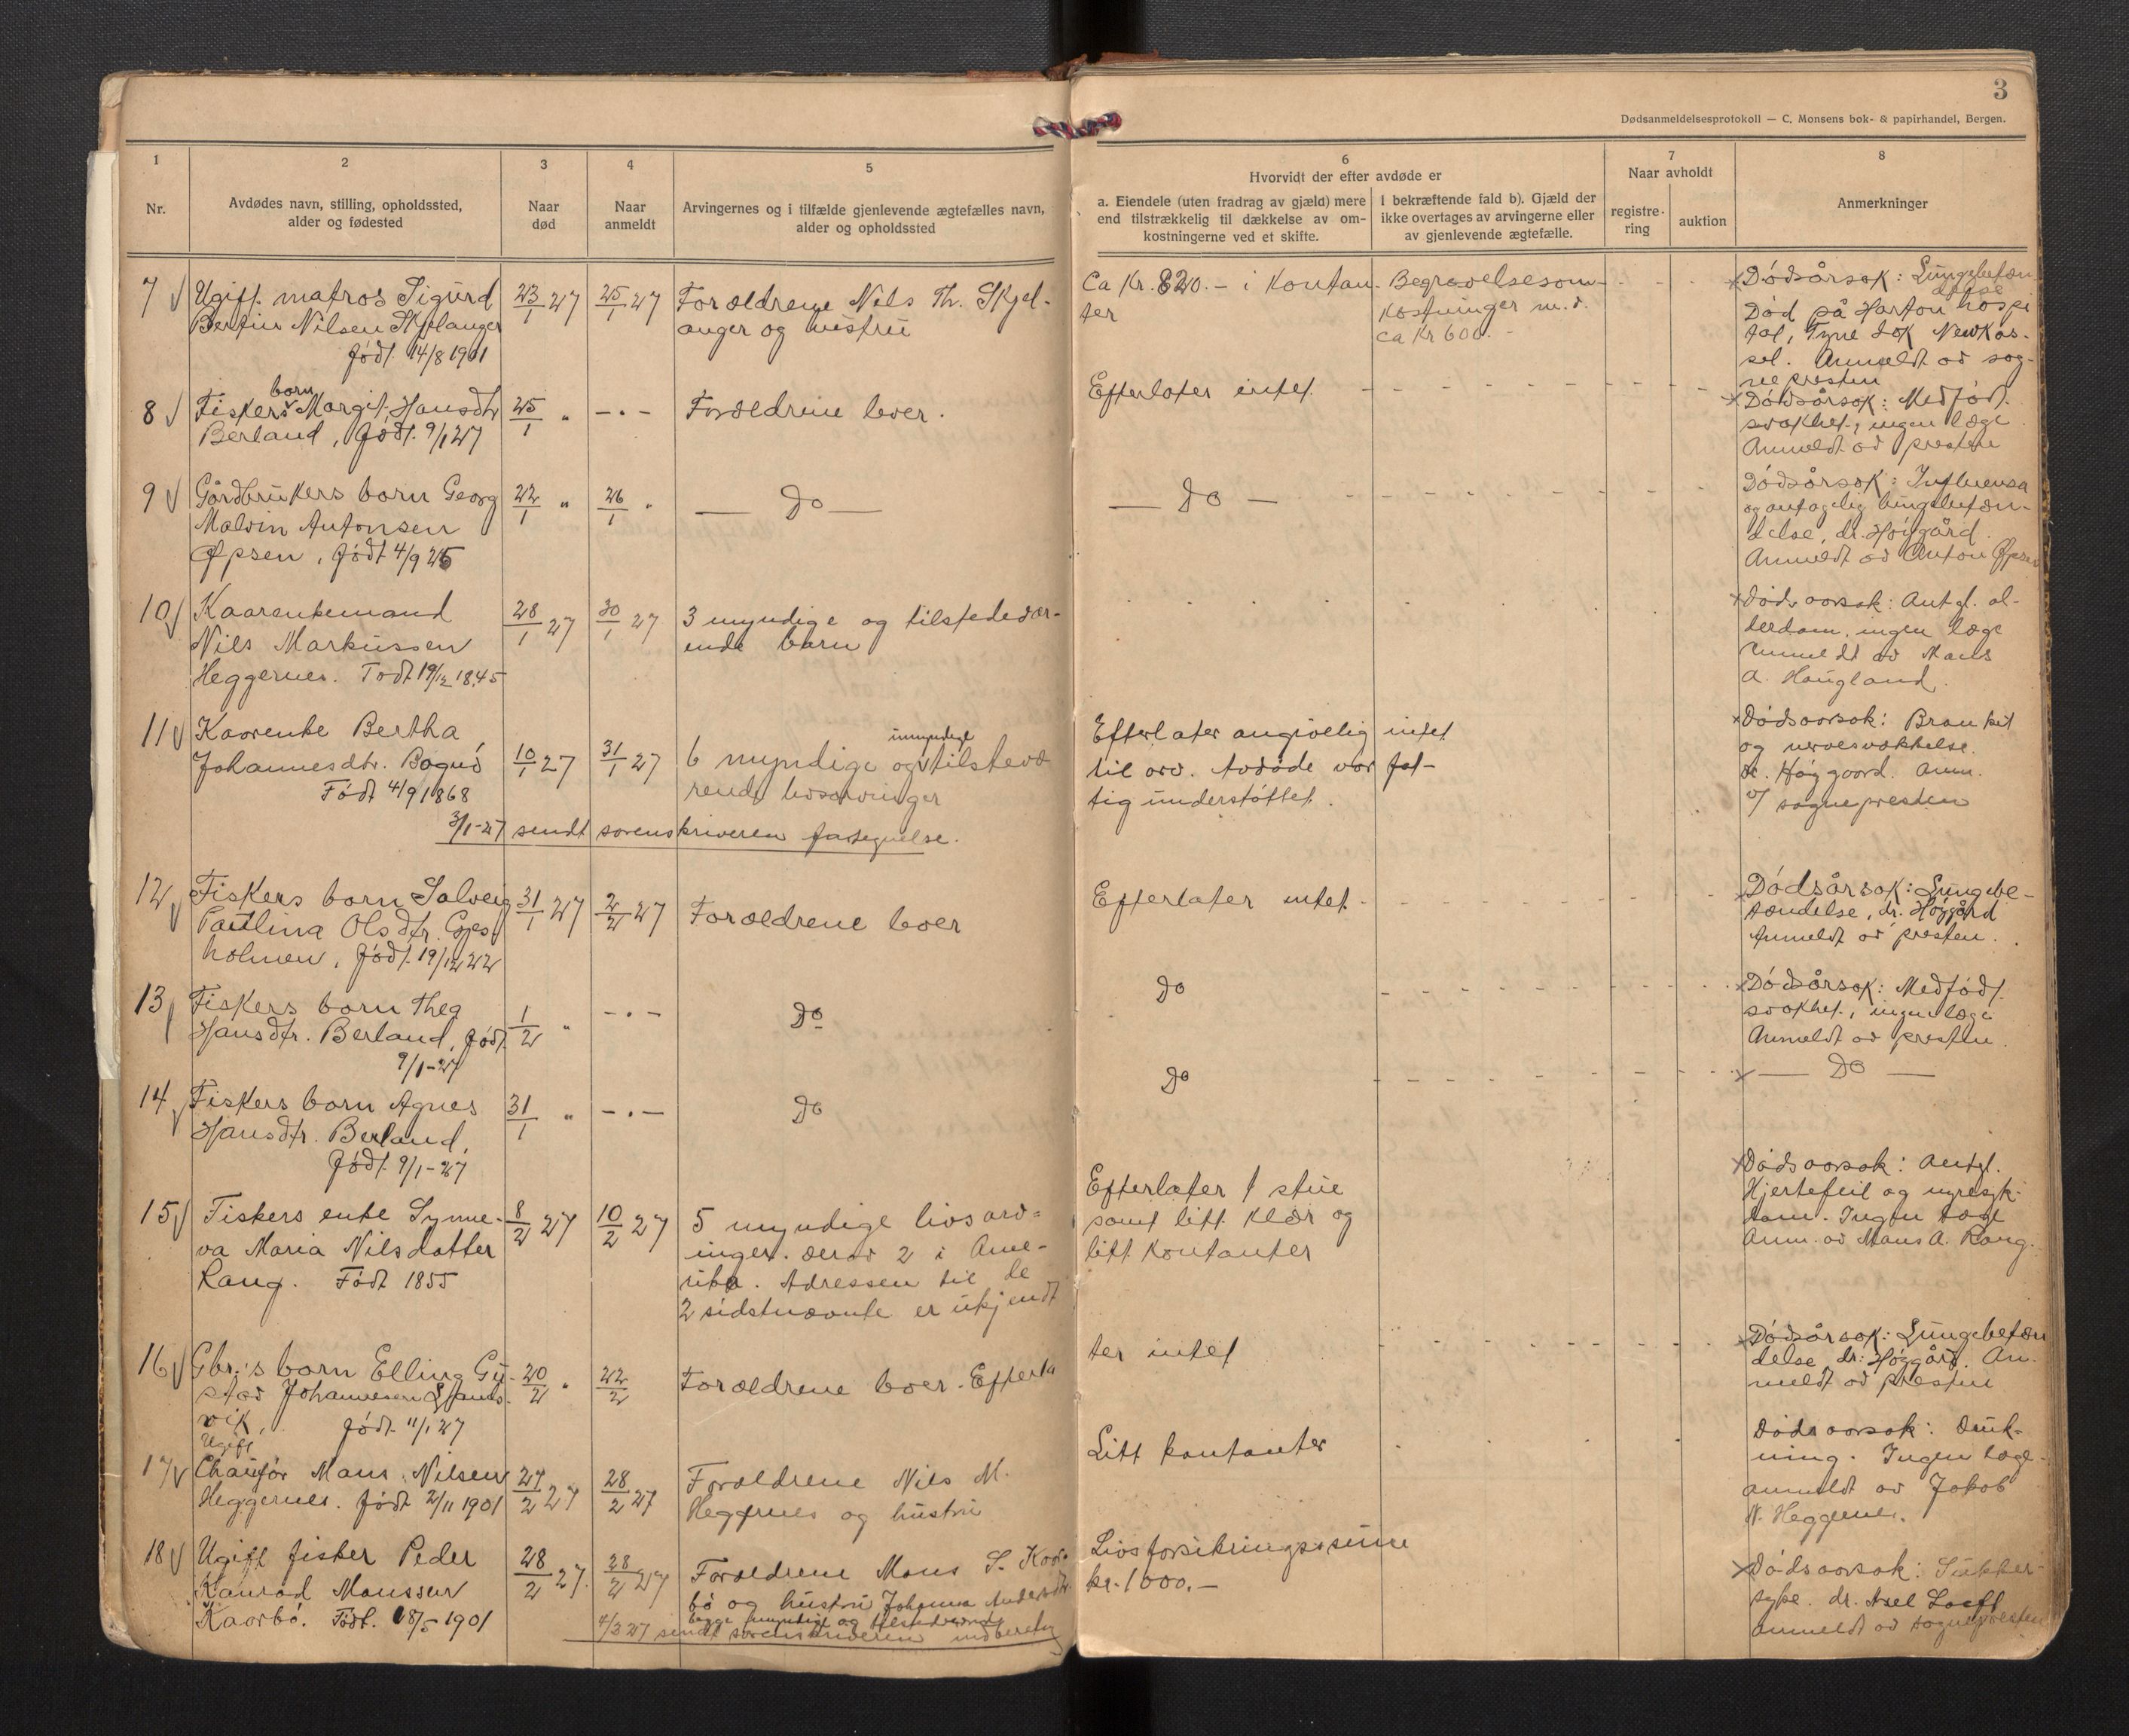 3
Dødsanmeldelsesprotokoll — C. Monsens bok- & papirhandel, Bergen.
1
Nr.
2
Avdødes navn, stilling, opholdssted,
alder og fødested
3
Naar
død
4
Naar
anmeldt
5
Arvingernes og i tilfælde gjenlevende ægtefælles navn,
alder og opholdssted
6
Hvorvidt der efter avdøde er
a. Eiendele (uten fradrag av gjæld) mere
end tilstrækkelig til dækkelse av om-
kostningerne ved et skifte.
I bekræftende fald b). Gjæld der
ikke overtages av arvingerne eller
av gjenlevende ægtefælle.
7
Naar avholdt
registre-
ring
auktion
8
Anmerkninger
7 Ugift matros Sigurd
Bertin Nilsen Skjelanger
født 14/8 1901
23/1 27
25/1 27
Forældrene Nels Th. Skjel-
anger og hustru
Ca Kr. 820.- i Kontan-
ter
Begravelsesom-
kostninger m.v.
ca Kr 600.-
Dødsårsak: Lungebetæn
delse
Død på Harton hospi
tal, Tyne Dok Newkas-
sel. Anmeldt av sog-
nepresten
8 Fiskers barn Margit Hansdtr
Berland, født 9/1 27
25/1 "
- . -
Forældrene lever.
Efterlater intet
Dødsårsak: Medfødt
svakhet, ingen læge
Anmeldt av presten
9 Gårdbrukers barn Georg
Malvin Antonsen
Øpsen, født 4/9 25
22/1 "
26/1 "
Do
Do
Dødsårsak: Influensa
og antagelig lungebetæn-
delse, dr. Høygård.
Anmeldt av Anton Øpsen
10 Kaarenkemand
Nils Markussen
Heggernes. Født 19/12 1845
28/1 27
30/1 27
3 myndige og tilstedevær-
ende barn
Dødsaarsak: Antgl. al-
derdom. ingen læge
Anmeldt av Mons
A. Haugland.
11 Kaarenke Bertha
Johannesdtr. Bognø
Født 4/9 1868
10/1 27
31/1 27
umyndige
6 myndige og tilstevæ
rende livsarvinger
Efterlater angivelig intet
til arv. Avdøde var fat-
tig understøttet.
Dødsaarsak: Bronkit
og nervesvækkelse.
dr. Høygaard. Anm.
v/ sognepresten
3/1-27 sendt sorenskriveren fortegnelse.
12 Fiskers barn Solveig
Paulina Olsdtr. Geps-
holmen, født 19/12 22
31/1 27
2/2 27
Forældrene lever
Efterlater intet
Dødsårsak: Lungebe-
tændelse, dr. Høygård
Anmeldt av presten.
13 Fiskers barn Thea
Hansdtr. Berland, født
9/1-27
1/2 "
- . -
Do
Do
Dødsårsak: Medfødt
svakhet, ingen læge
Anmeldt av presten.
14 Fiskers barn Agnes
Hansdtr. Berland,
født 9/1-27
31/1 "
- . -
Do
Do
Do
15 Fiskers enke Synne-
va Maria Nilsdatter
Rang. Født 1855
8/2 27
10/2 27
5 myndige livsarv-
inger. derav 2 i Ame-
rika. Adressen til de
2 sidstnævnte er ukjendt
Efterlater 1 stue
samt litt klær og
litt kontanter
Dødsaarsak: Antgl.
Hjertefeil og nyresyk-
dom. Ingen læge
Anm. av Mons A. Rang.
16 Gbr.'s barn Elling Gu-
stav Johannesen
vik, født 11/1 27
20/2 "
22/2
Forældrene lever. Efterla
ter intet
Dødsårsak: Lungebetæn
delse, dr. Høygård. An-
meldt av presten
17 Ugift
Chaufør Mons Nilsen
Heggernes. født 2/11 1901
27/2 27
28/2 27
Forældrene Nils M.
Heggernes og hustru
Litt kontanter
Dødsaarsak: Druk-
ning. Ingen læge
anmeldt av Jakob
N. Heggernes.
18 Ugift fisker Peder
Konrad Monssen
Kaarbø. Født 18/5-1901
28/2 27.
28/2 27
Forældrene Mons S. Kaar-
bø og hustru Johanna Andersdtr.
begge myndige og tilstedeværende
4/3 27 sendt sorenskriveren indberetng
Livsforsikringssum
kr. 1000.-
Dødsaarsak: Sukker-
syke. dr. Axel Looft
anmeldt av sognepresten